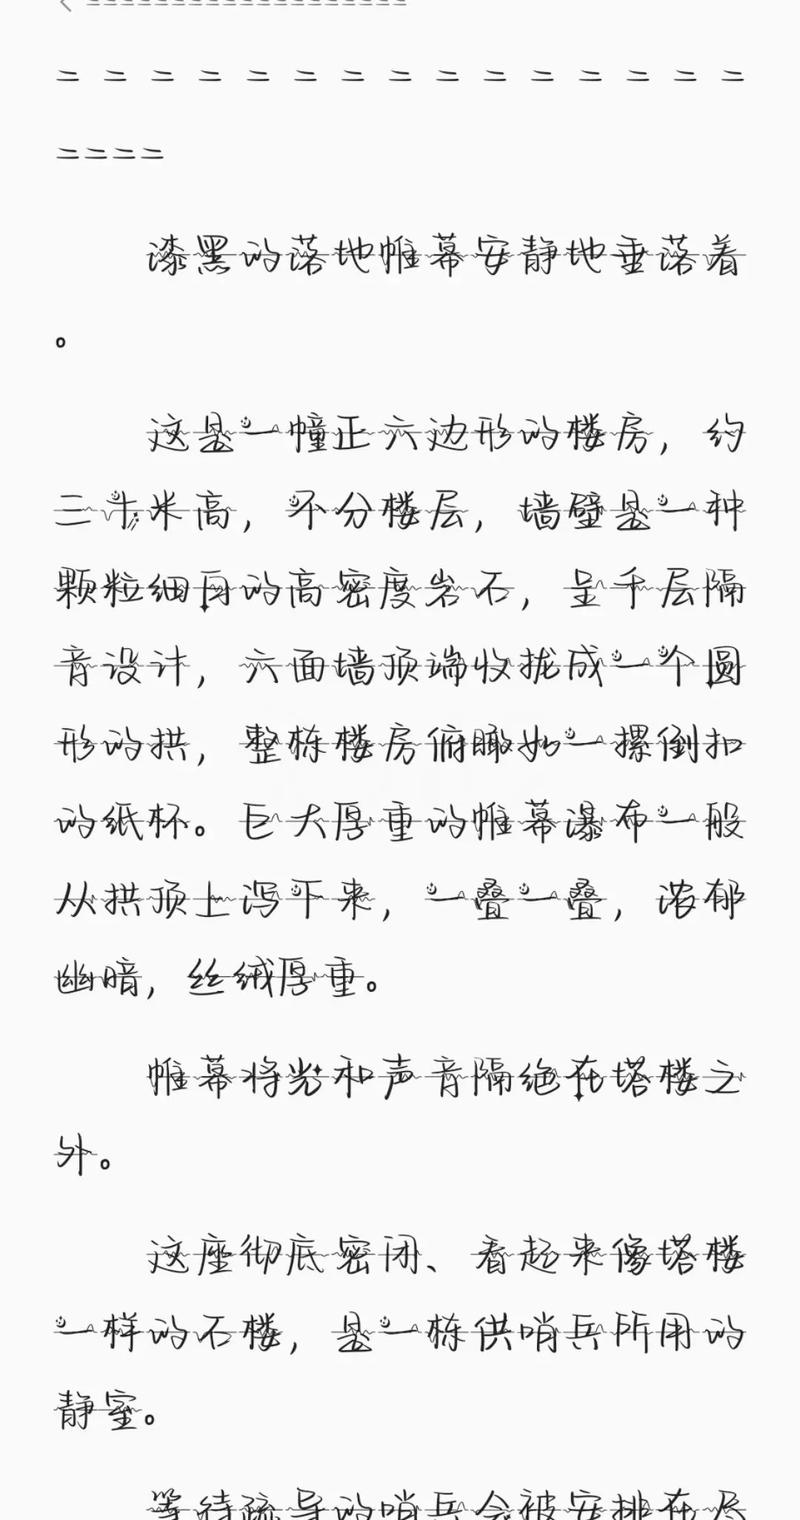 二 二 二 二 二 二 二 二 二 二 二 二 二 二 二
二二二二
漆黑的落地帷幕安静地垂落着
。
这是一幢正六边形的楼房，约
三十米高，不分楼层，墙壁是一种
颗粒细円的高密度岩石，呈千层隔
音设计，六面墙顶端收拢成一个圆
形的拱，整栋楼房俯瞰如一摞倒扣
的纸杯。巨大厚重的帷幕瀑布一般
从拱顶上泻下来，一叠一叠，浓郁
幽暗，丝绒厚重。
帷幕将光和声音隔绝在塔楼之
外。
这座彻底密闭、看起来像塔楼
一样的石楼，是一栋供哨兵所用的
静室。
等待疏导的哨兵会被安排在尽